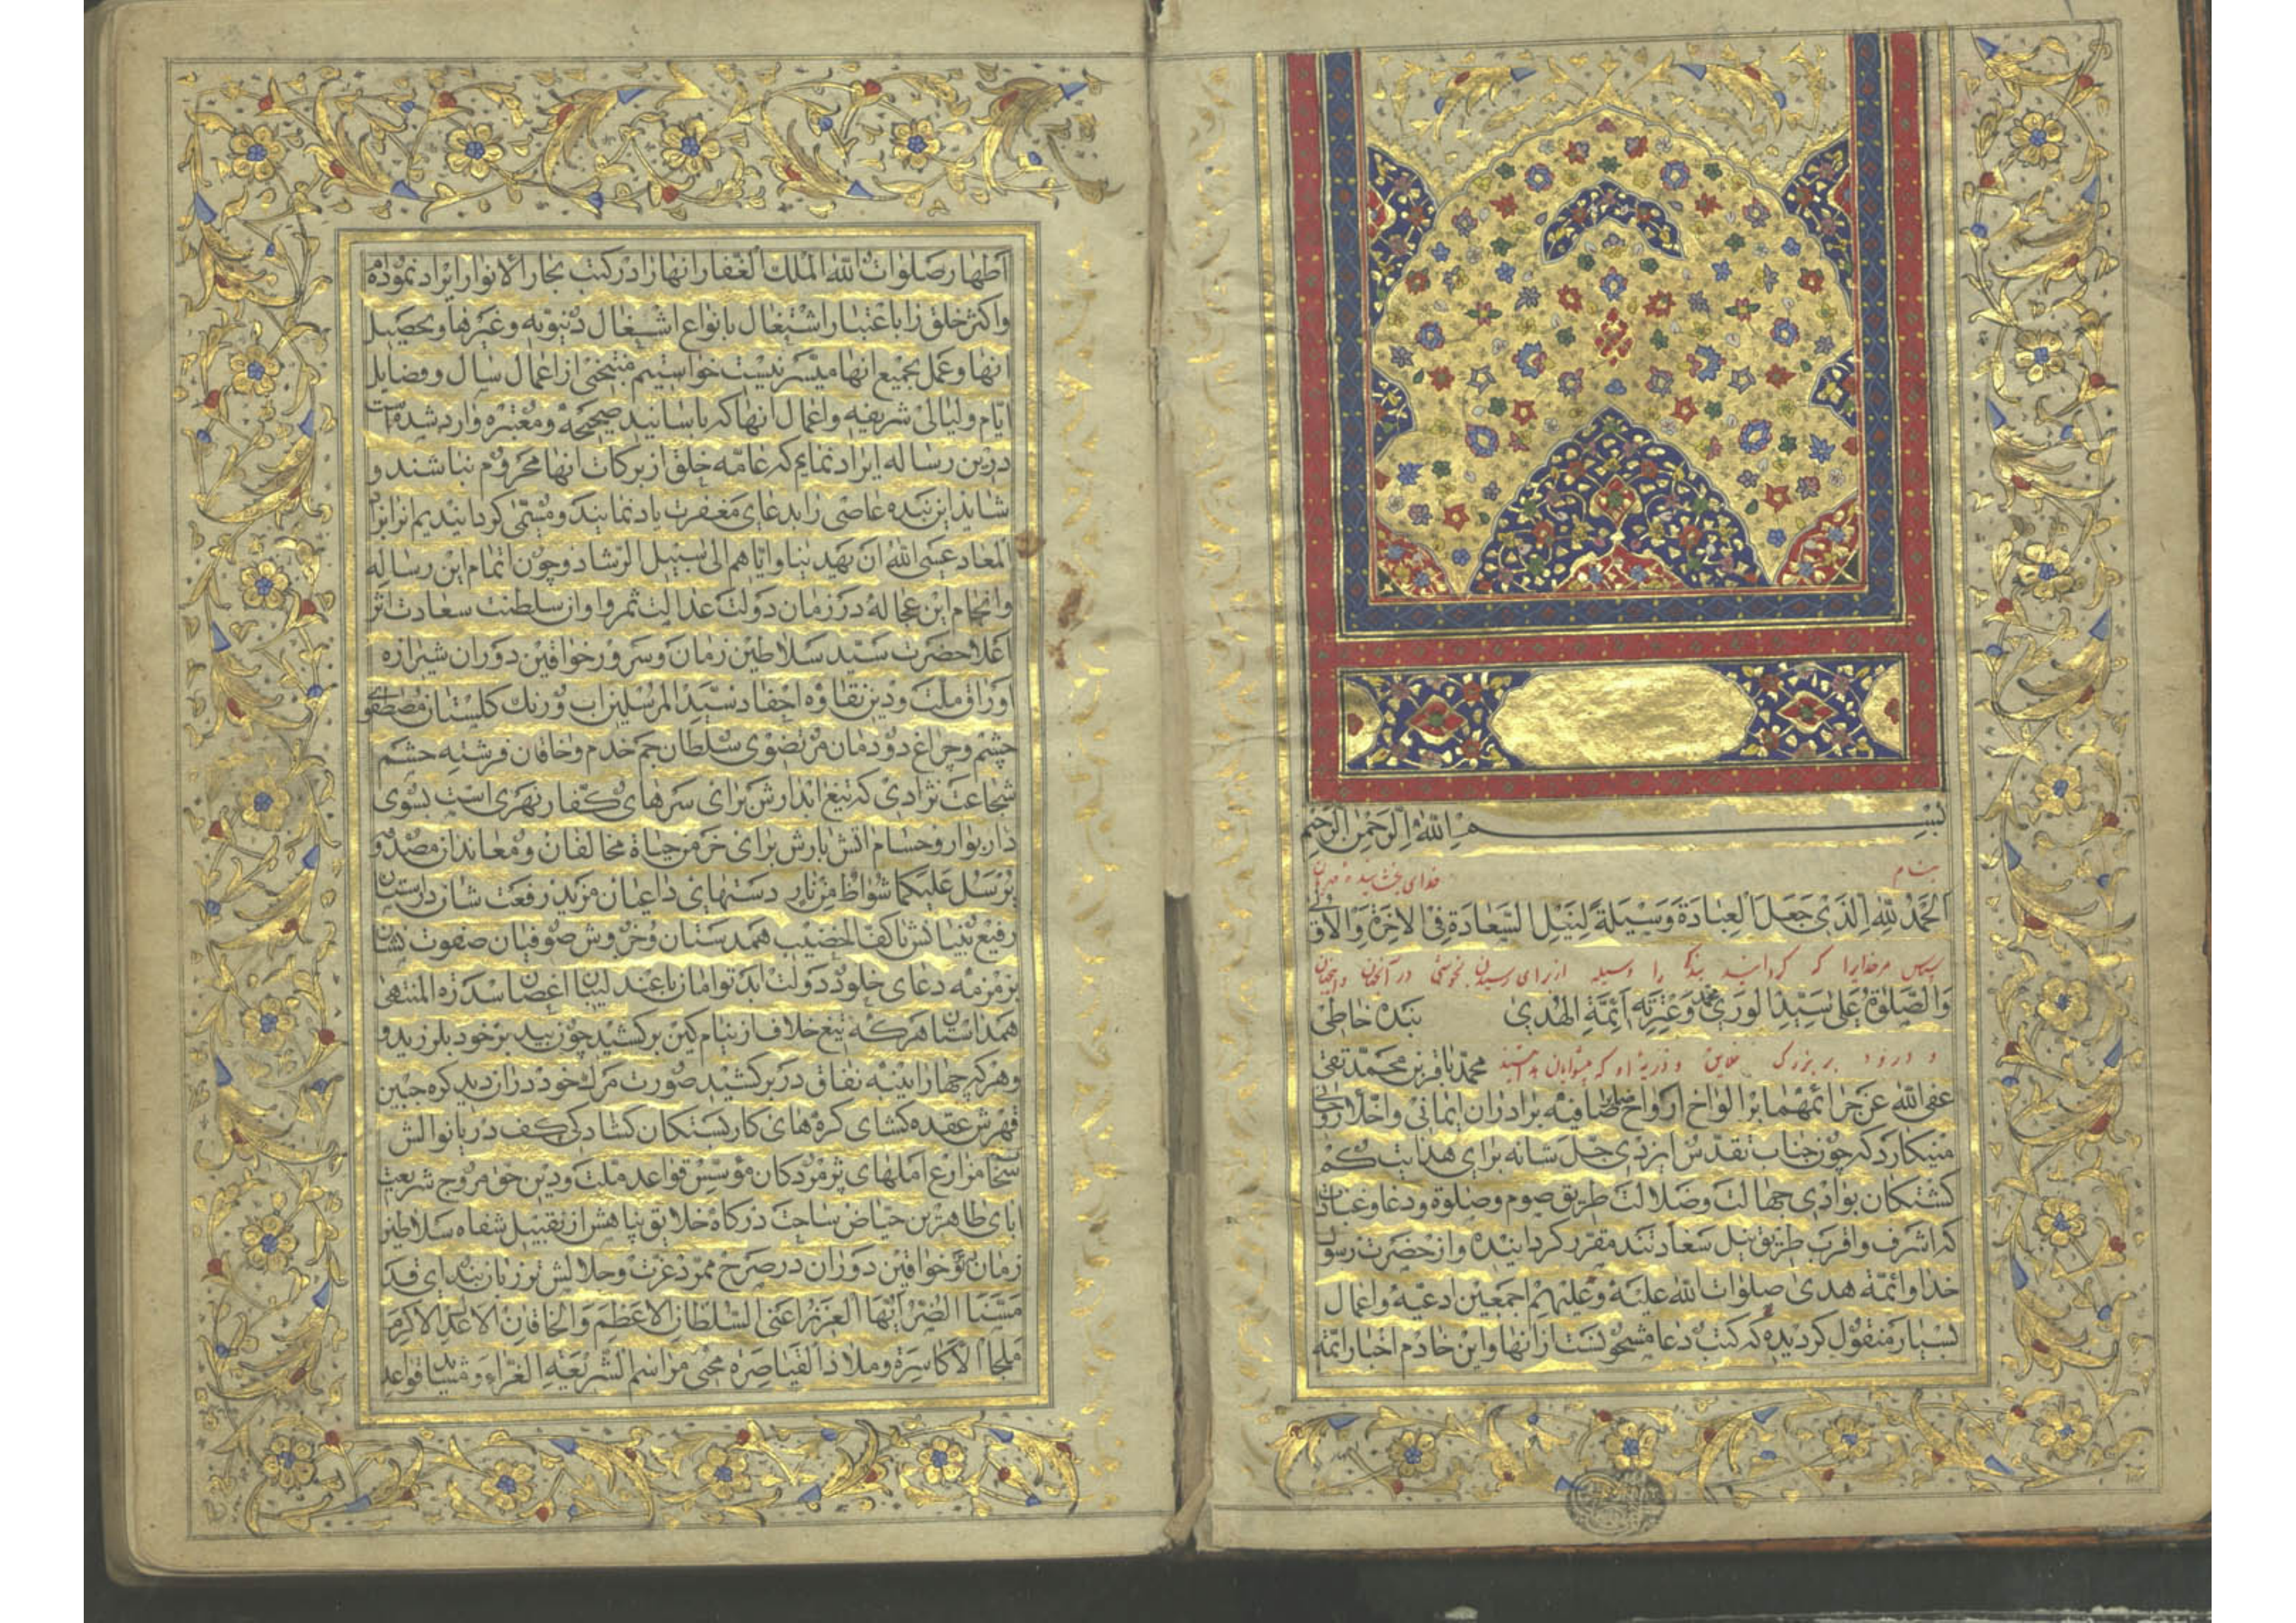 بسم الله الرحمن الرحیم
بنام خدای بخشاینده مهربان
الحمد لله الذی جعل العبادة وسیلة لنیل السعادة فی الآخرة والاولی
سپاس مر خدایرا که گردانید بندگی را وسیله از برای رسیدن بخوشی در آنجهان و اینجهان
والصلوة علی سید الوری محمد وعترته ائمة الهدی بنده خاطی
و درود بر بزرگ خلایق و ذریه او که پیشوایان هدایتند محمد باقر بن محمد تقی
عفی الله عن جرائمهما بر الواح ارواح صافیه برادران ایمانی واخلاء روحانی
مینکارد که چون جناب تقدس ایزدی جل شانه برای هدایت کم
کشتکان بوادی جهالت وضلالت طریق صوم وصلوة ودعا وعبادات
که اشرف واقرب طریق نیل سعادتند مقرر کردانیده واز حضرت رسول
خدا وائمه هدی صلوات الله علیه وعلیهم اجمعین ادعیه واعمال
بسیار منقول کردیده که کتب دعا مشحونست از انها واین خادم اخبار ائمه
اطهار صلوات الله الملک الغفار انها را در کتب بحار الانوار ایراد نموده‌ام
واکثر خلق را باعتبار اشتغال بانواع اشغال دنیویه وغیرها وتحصیل
انها وعمل بجمیع انها میسر نیست خواستیم منتخبی از اعمال سال وفضایل
ایام ولیالی شریفه واعمال انها که باسانید صحیحه ومعتبره وارد شده است
درین رساله ایراد نمایم که عامه خلق از برکات انها محروم نباشند و
شاید این بنده عاصی را بدعای مغفرت یاد نمایند ومسمی کردانیدیم انرا بزاد
المعاد عسی الله ان یهدینا وایاهم الی سبیل الرشاد وچون اتمام این رساله
وانجام این عجاله در زمان دولت عدالت ثمر واوان سلطنت سعادت اثر
اعلاحضرت سید سلاطین زمان وسرور خواقین دوران شیرازه
اوراق ملت ودین نقاوه احفاد سید المرسلین اب ورنک کلستان مصطفوی
چشم وچراغ دودمان مرتضوی سلطان جم خدم وخاقان فرشته حشم
شجاعت نژادی که تیغ ابدارش برای سرهای کفار نهریست بسوی
دار بوار وحسام اتش بارش برای خرمن حیاة مخالفان ومعاندان مصدوقه
یرسل علیکما شواظ من نار دستهای داعیان مزید رفعت شان در استان
رفیع بنیانش با کف الخضیب همدستان وخروش صوفیان صفوت نشان
بزمزمه دعای خلود دولت ابد توامان با عندلیبان اغصان سدرة المنتهی
همداستان هر که تیغ خلاف از نیام کین برکشید چون بید بر خود بلرزید و
وهر که چهار ایینه نفاق در بر کشید صورت مرک خود دران دید کره جبین
قهرش عقده کشای کره‌های کار بستکان کشادکی کف دریا نوالش
سخا مزارع املهای پژمردکان مؤسس قواعد ملت ودین حق مروج شریعت
ابای طاهرین حیاض ساحت درکاه خلایق پناهش از تقبیل شفاه سلاطین
زمان وخواقین دوران در صرح ممرد عزت وجلالش بر زبان ندای قد
مسنا الضر ایها العزیز اعنی السلطان الاعظم والخاقان الاعدل الاکرم
ملجأ الاکاسرة وملاذ القیاصره محیی مراسم الشریعة الغراء ومشید قواعد